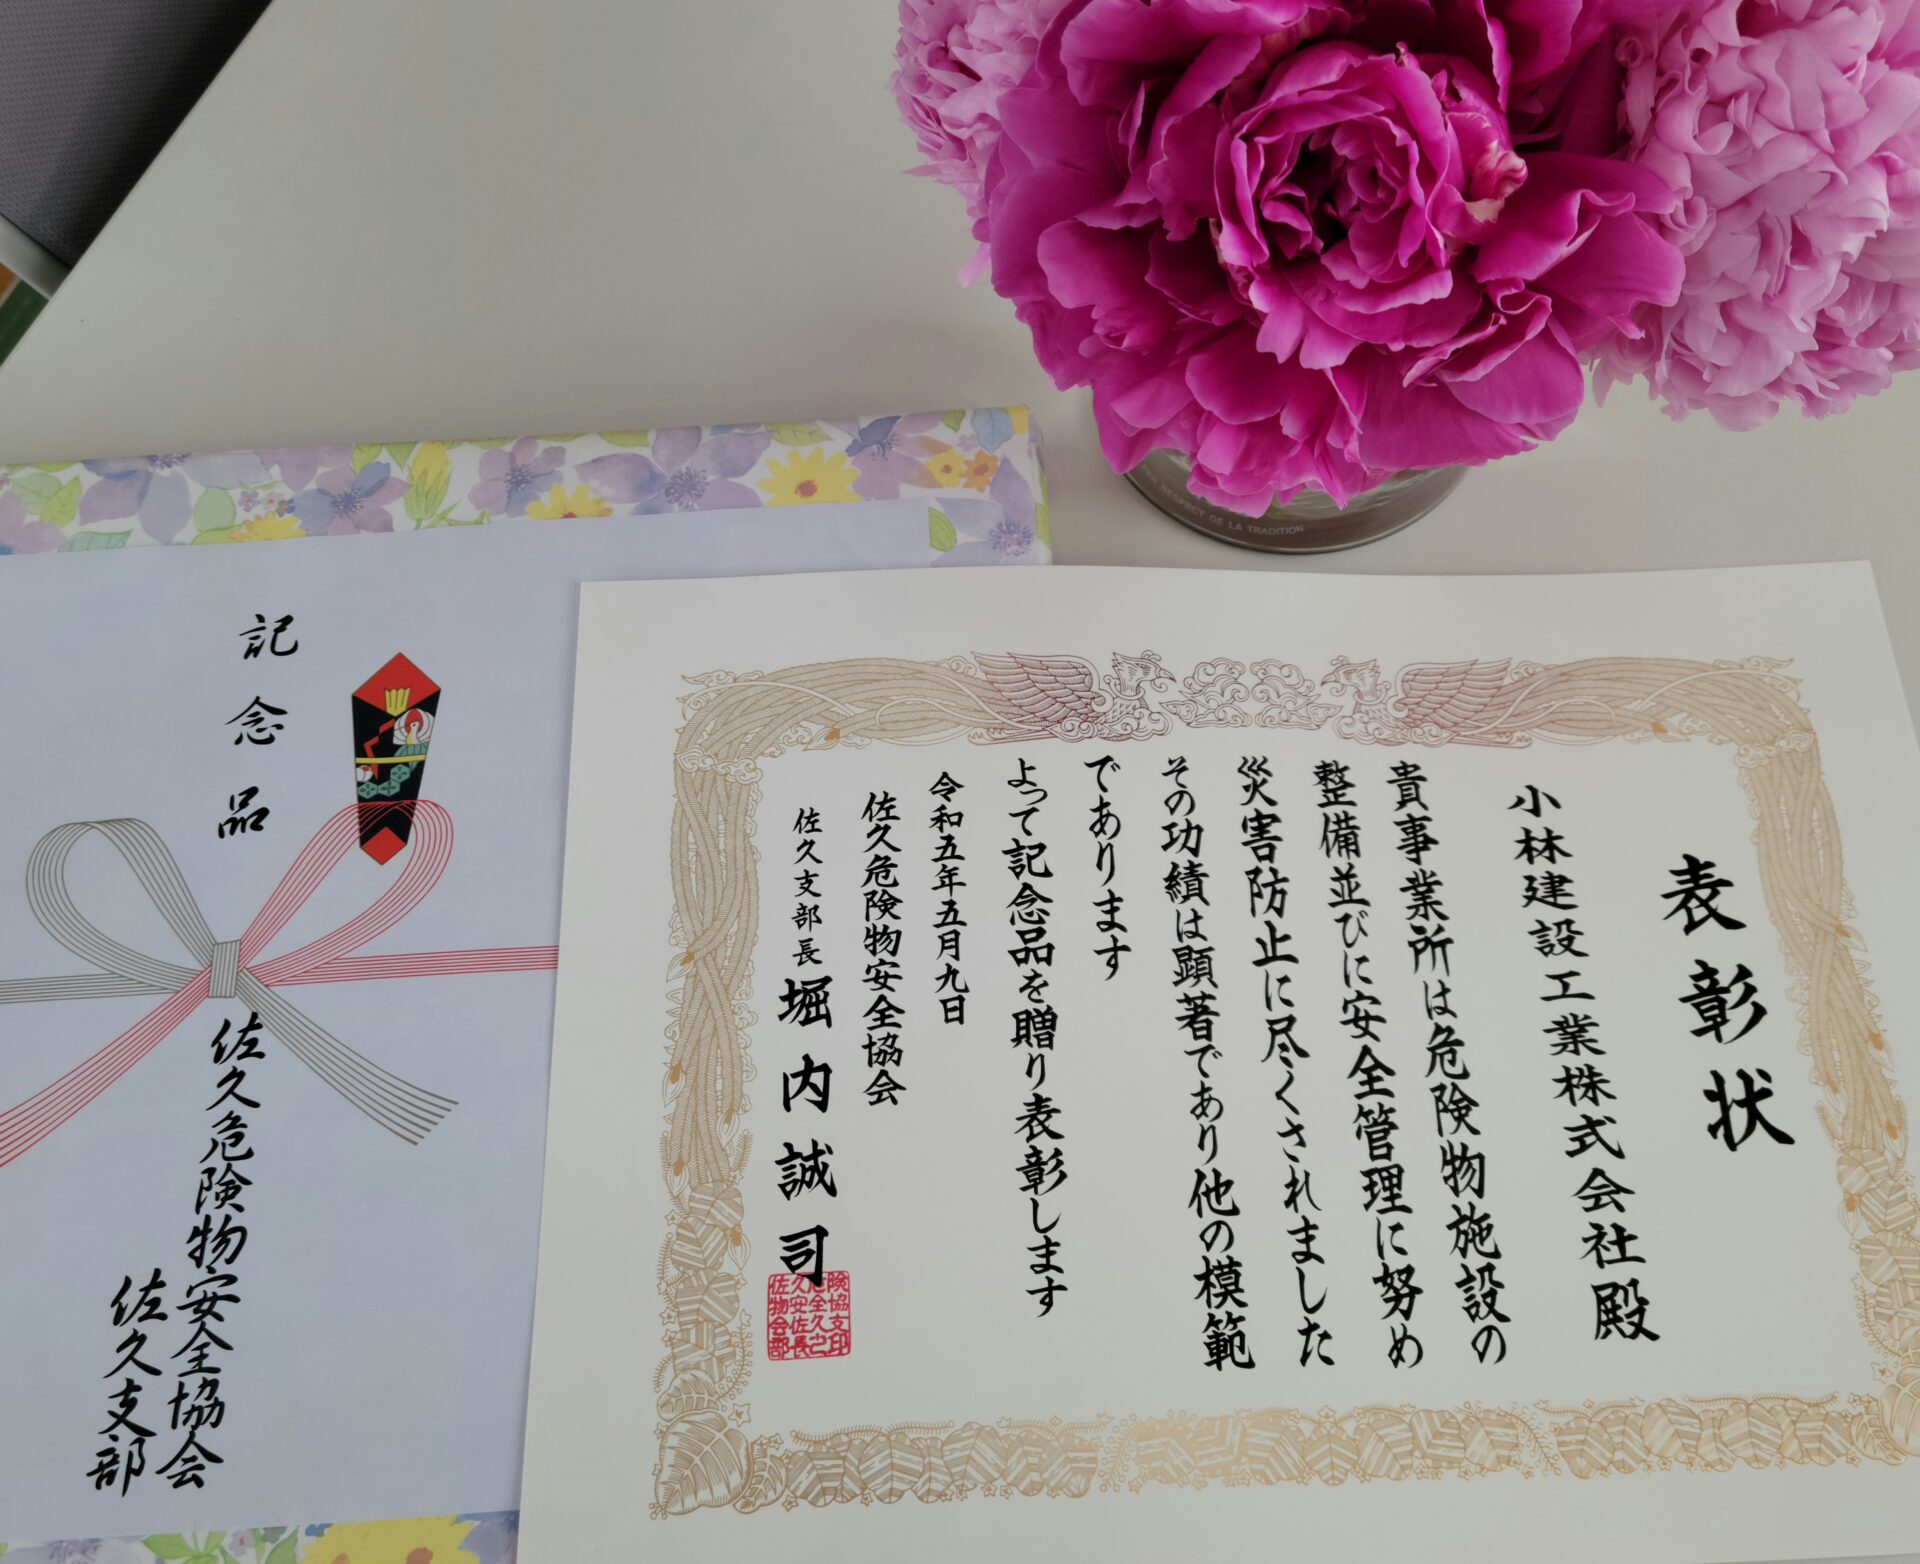 表彰状
小林建設工業株式会社殿
貴事業所は危険物施設の
整備並びに安全管理に努め
災害防止に尽くされました
その功績は顕著であり他の模範
であります
よって記念品を贈り表彰します
令和五年五月九日
佐久危険物安全協会
佐久支部長 堀内誠司
険協支印
危全久之
久安佐長
佐物会部
記念品
佐久危険物安全協会
佐久支部
RESPECT DE LA TRADITION